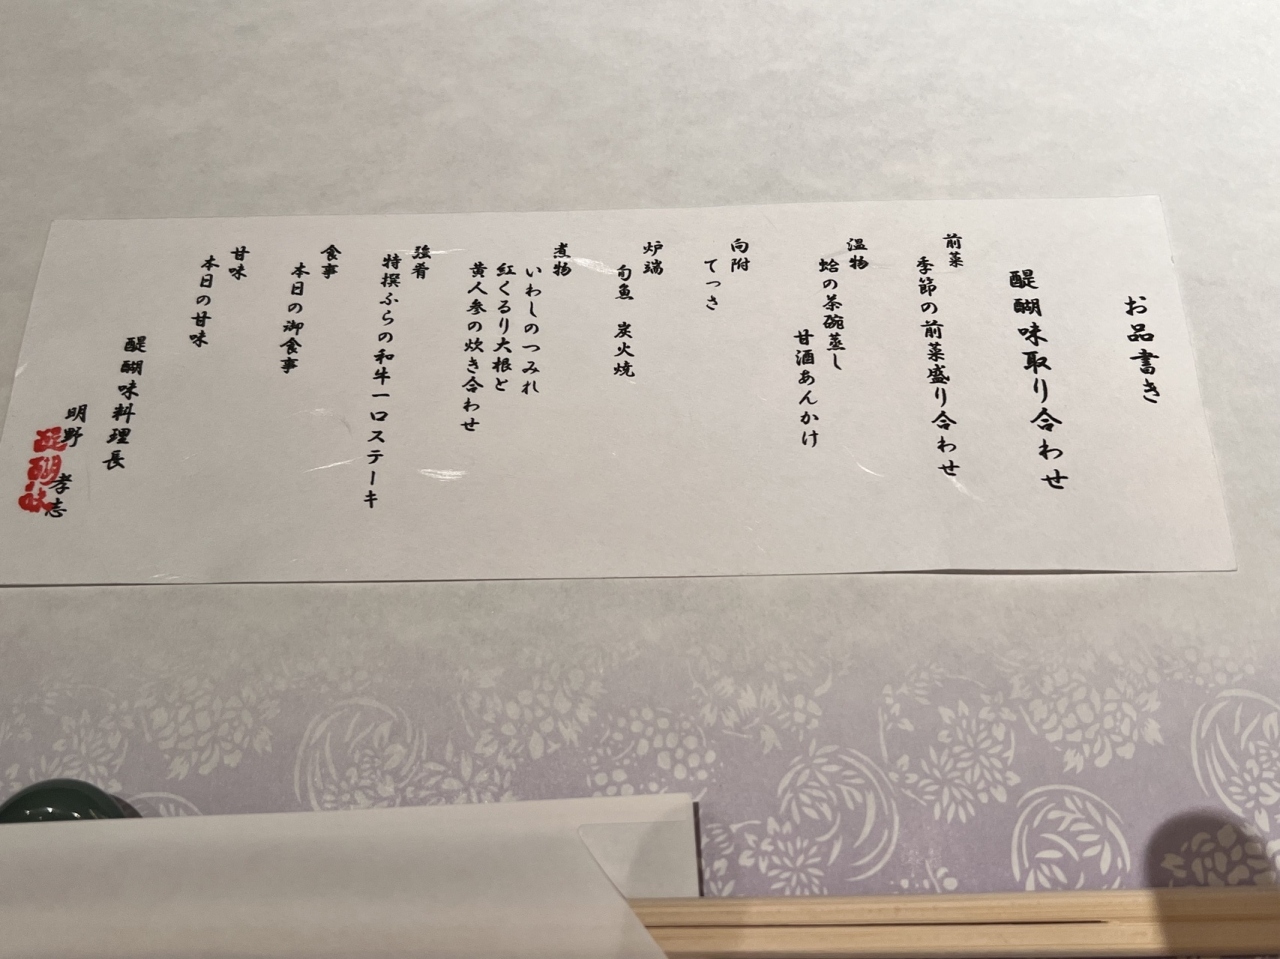 お品書き
醍醐味取り合わせ
前菜
季節の前菜盛り合わせ
温物
蛤の茶碗蒸し
甘酒あんかけ
向附
てっさ
炉端
旬魚 炭火焼
煮物
いわしのつみれ
紅くるり大根と
黄人参の炊き合わせ
強肴
特撰ふらの和牛一口ステーキ
食事
本日の御食事
甘味
本日の甘味
醍醐味料理長
明野 孝志
醍醐味